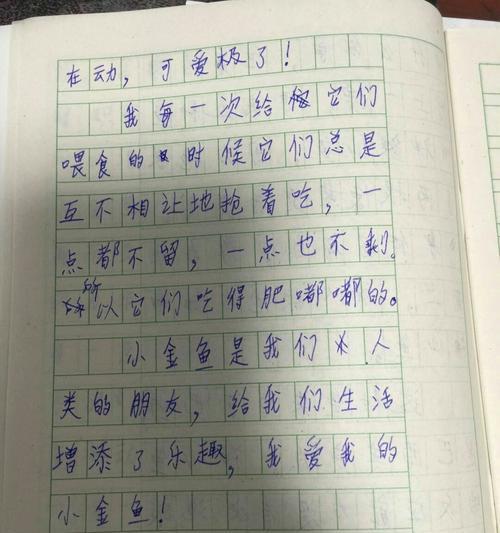 在动，可爱极了！
我每一次给它们
喂食的时候它们总是
互不相让地抢着吃，一
点都不留，一点也不剩。
所以它们吃得肥嘟嘟的。
小金鱼是我们人
类的朋友，给我们生活
增添了乐趣，我爱我的
小金鱼！